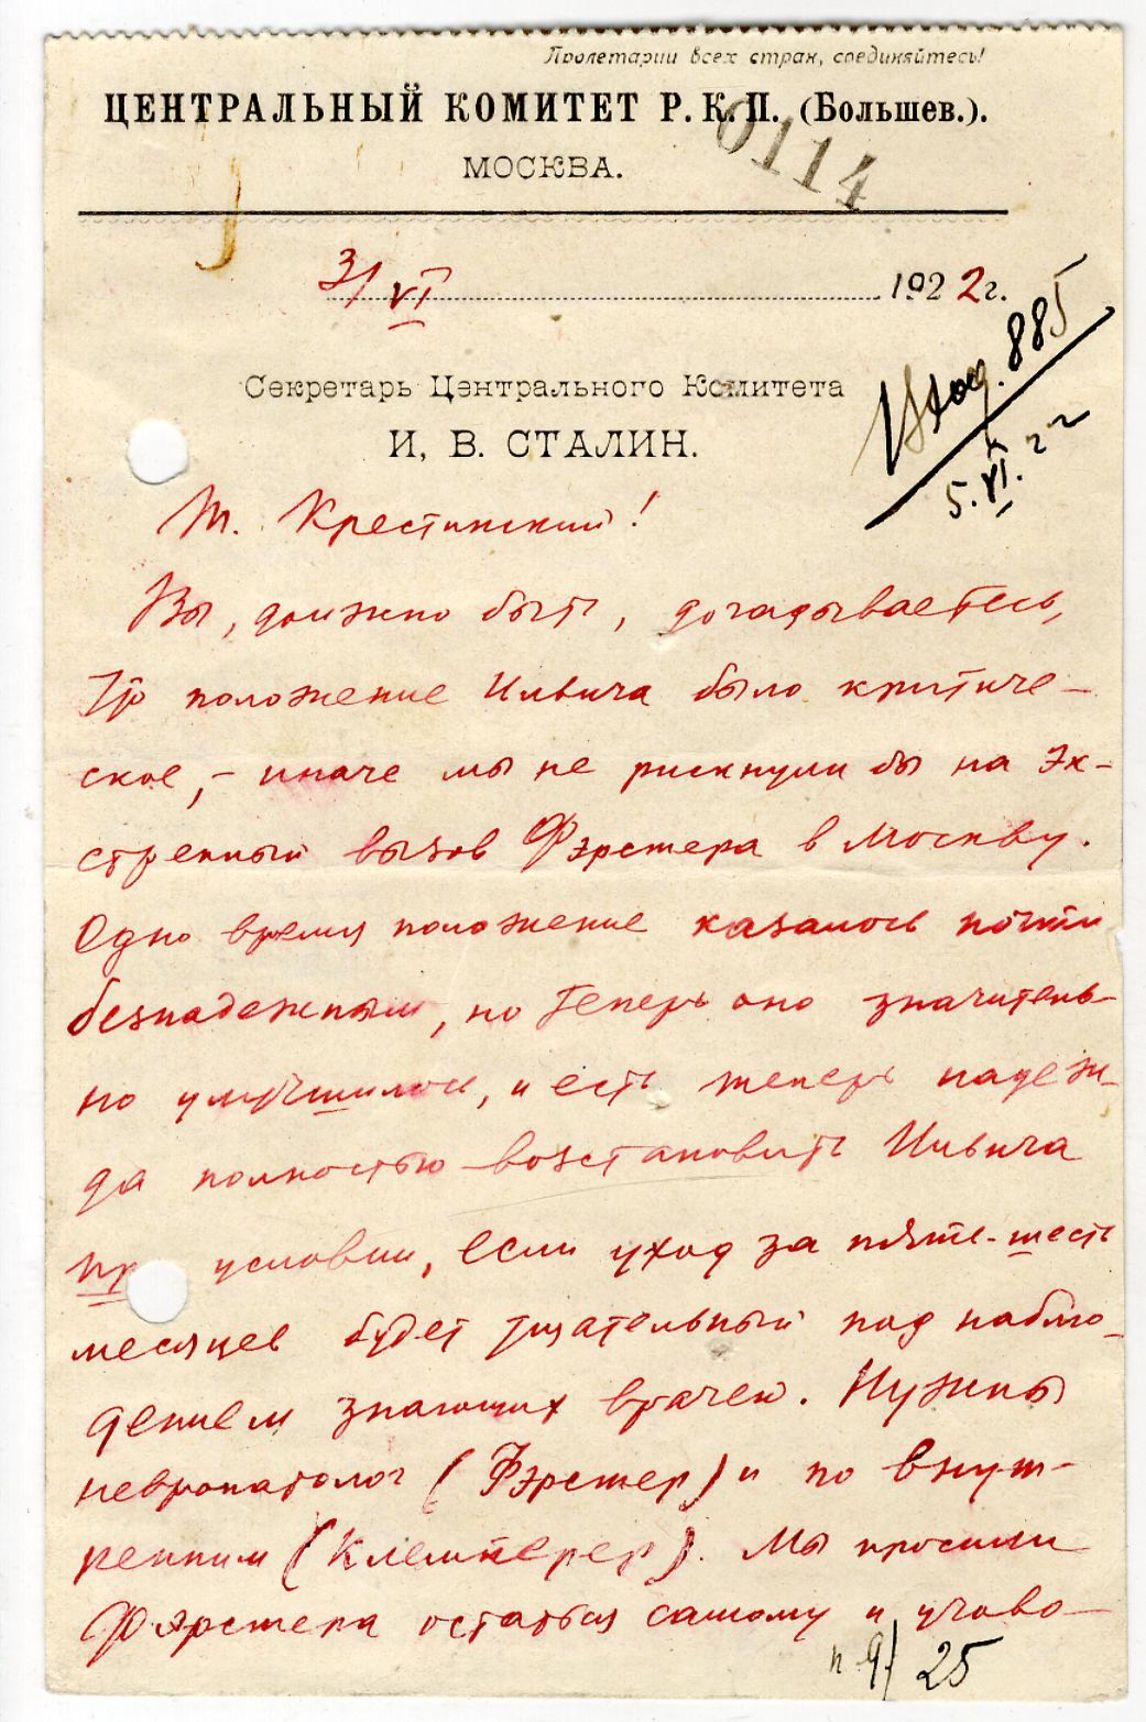 Пролетарии всех стран, соединяйтесь!
ЦЕНТРАЛЬНЫЙ КОМИТЕТ Р.К.П. (Большев.).
0114
МОСКВА.
3/VI 1922 г.
Вход. 885
5.VI.22
Секретарь Центрального Комитета
И. В. СТАЛИН.
Т. Крестинский!
Вы, должно быть, догадываетесь,
что положение Ильича было критиче-
ское, – иначе мы не рискнули бы на эк-
стренный вызов Фэрстера в Москву.
Одно время положение казалось почти
безнадежным, но теперь оно значитель-
но улучшилось, и есть теперь надеж-
да полностью возстановить Ильича
при условии, если уход за пять-шесть
месяцев будет тщательный под наблю-
дением знающих врачей. Нужны
невропатолог (Фэрстер) и по внут-
ренним (Клемперер). Мы просили
Фэрстера остаться самому и угово-
п 9/ 25